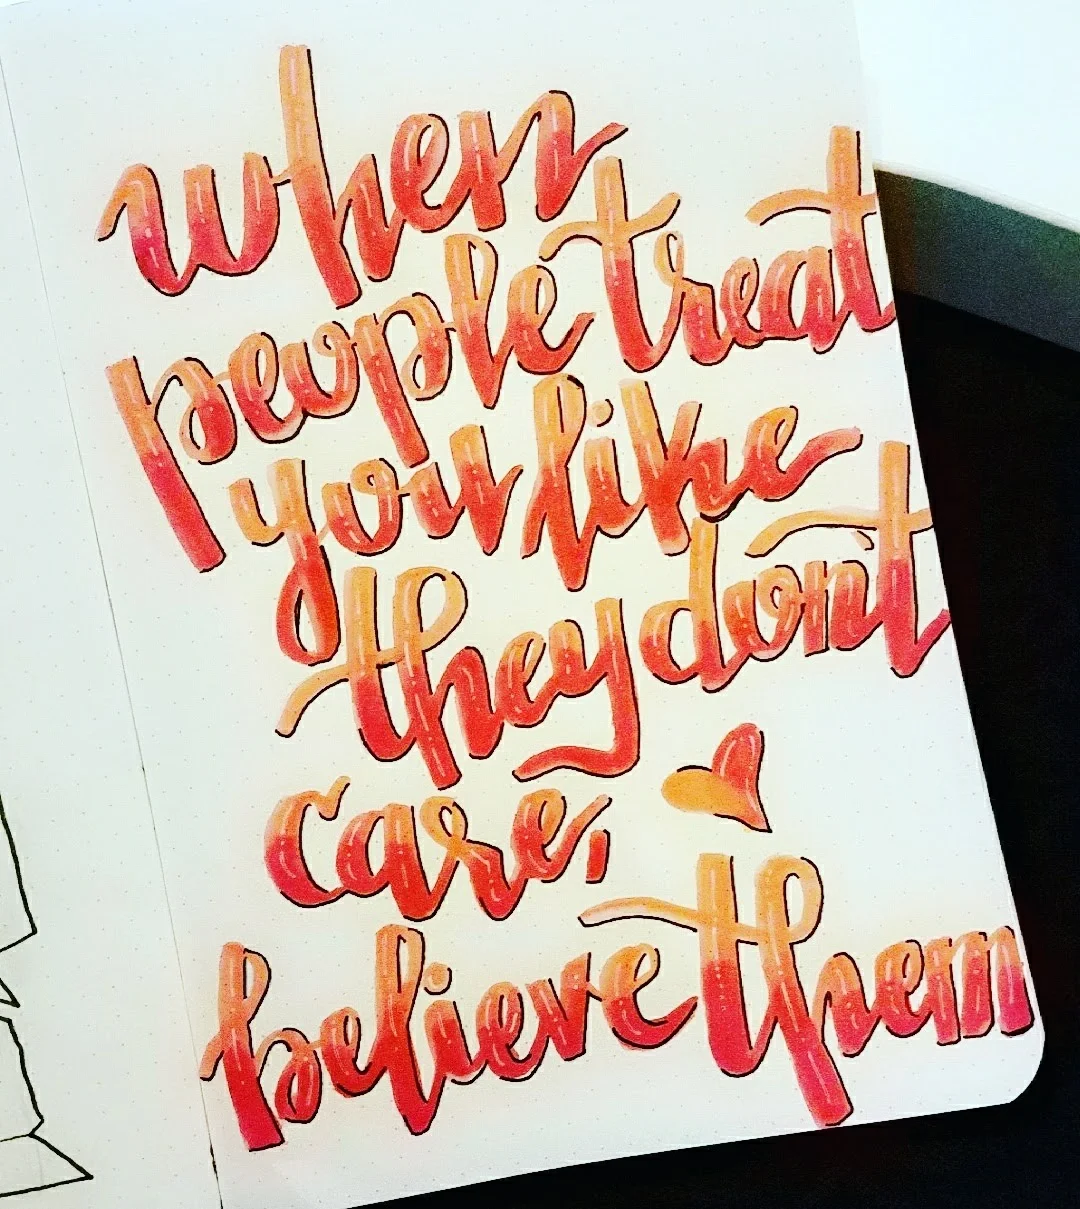 when
people treat
you like
they dont
care,
believe them